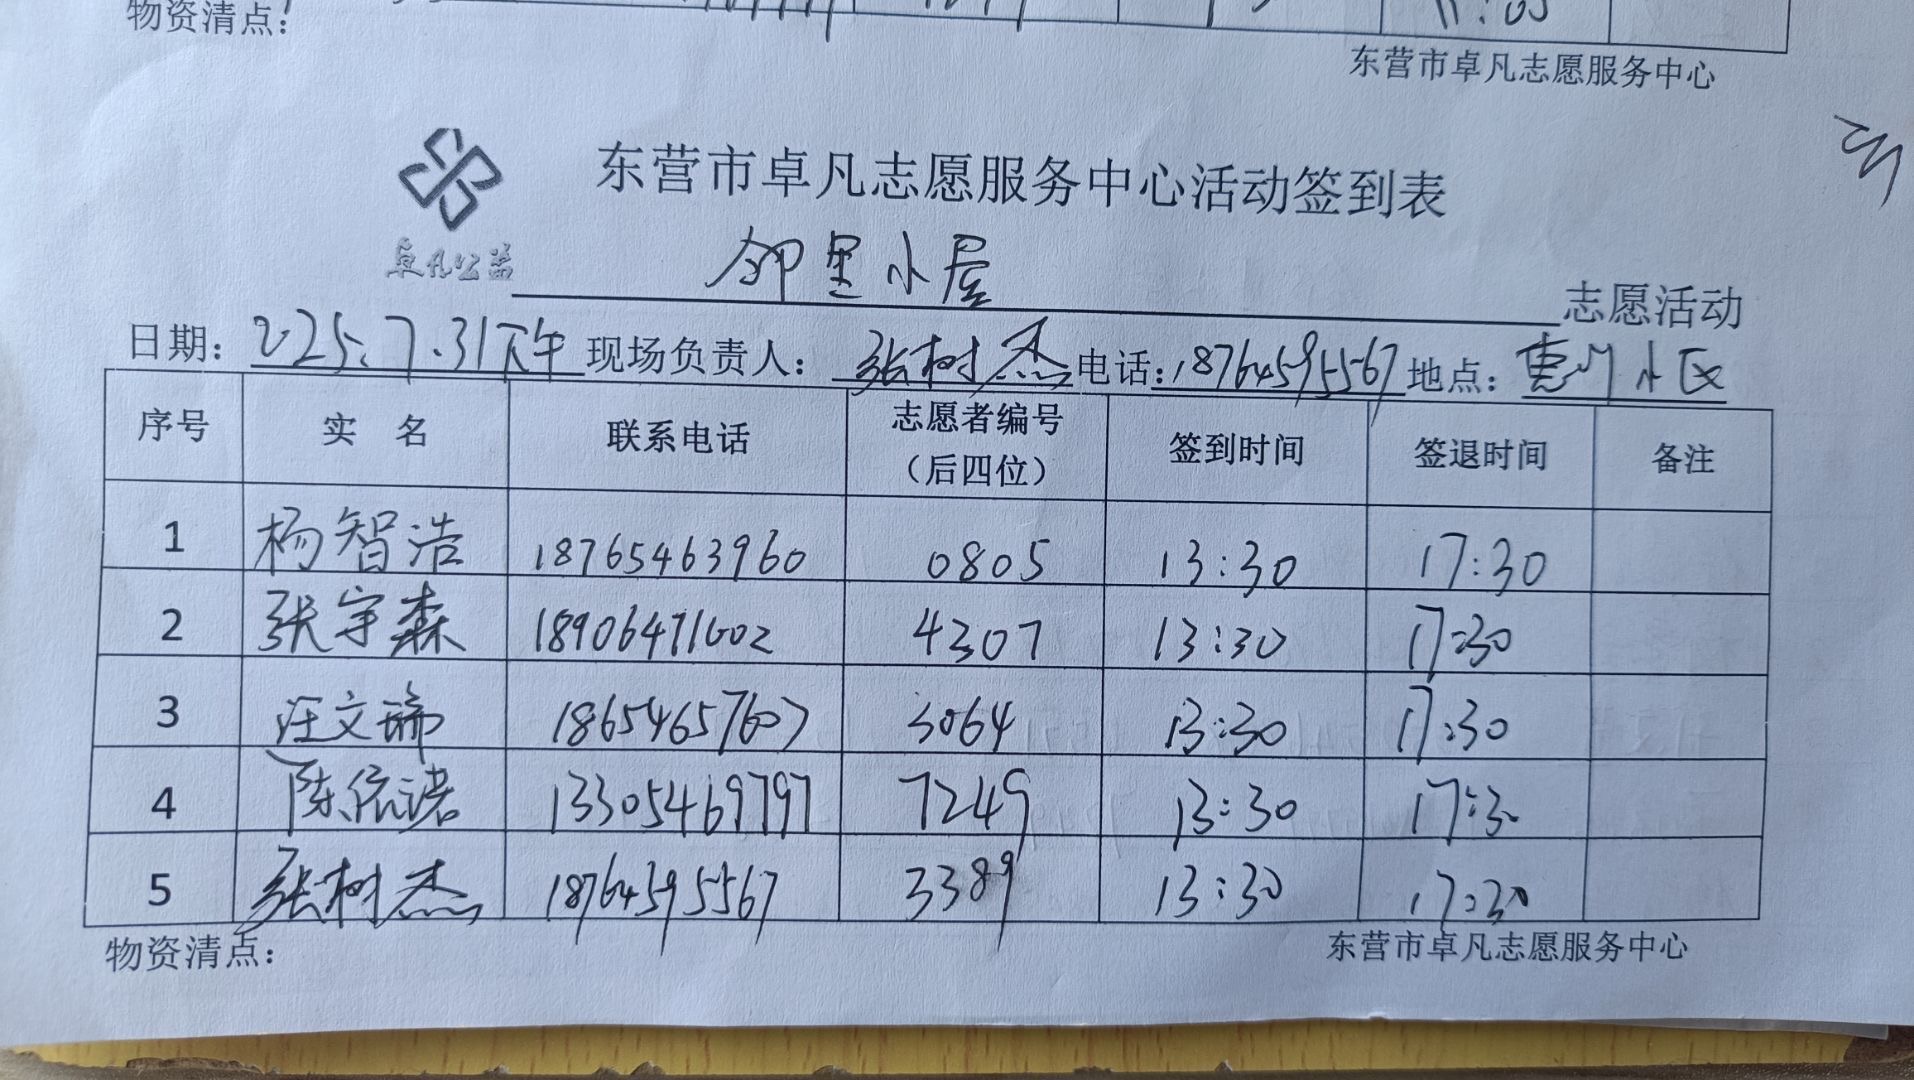 物资清点：
11:05
东营市卓凡志愿服务中心
东营市卓凡志愿服务中心活动签到表
卓凡公益
邻里小屋 志愿活动
日期：2025.7.31下午 现场负责人：张树杰 电话：18764595567 地点：惠州小区
序号 实 名 联系电话 志愿者编号（后四位） 签到时间 签退时间 备注
1 杨智浩 18765463960 0805 13:30 17:30
2 张宇森 18906471602 4307 13:30 17:30
3 汪文瑞 18654657607 3064 13:30 17:30
4 陈依诺 13305469797 7249 13:30 17:30
5 张树杰 18764595567 3389 13:30 17:30
物资清点：
东营市卓凡志愿服务中心